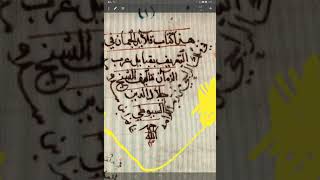 (١)
هذا كتاب قلائد الجمان في
التعريف بقبايل عرب
الزمان تأليف الشيخ
جلال الدين
السيوطي